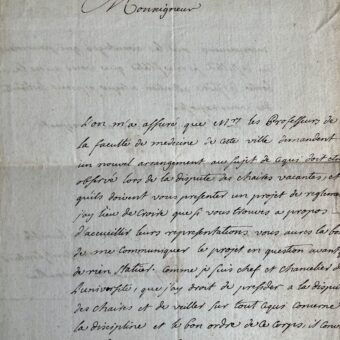 Monseigneur
L'on m'a assuré que Mrs les Professeurs de
la faculté de medecine de cette ville demandent
un nouvel arrangement au sujet de ce qui doit etre
observé lors de la dispute des chaires vacantes, et
quils doivent vous presenter un projet de reglem
j'ay lieu de croire que si vous trouvés a propos
d'accueillir leurs representations vous aures la bo
de me communiquer le projet en question avant
de rien statuer. comme je suis chef et chancelier de
L'université, que j'ay droit de presider a la dispu
des chaires et de veiller sur tout ce qui concerne
la discipline et le bon ordre de ce corps, il conv